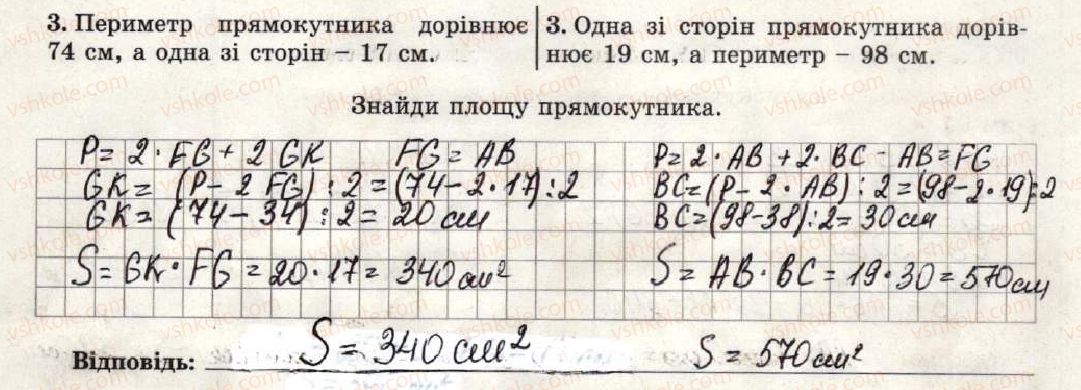 3. Периметр прямокутника дорівнює
74 см, а одна зі сторін – 17 см.
3. Одна зі сторін прямокутника дорів-
нює 19 см, а периметр – 98 см.
Знайди площу прямокутника.
P = 2 · FG + 2 GK FG = AB
GK = (P – 2 FG) : 2 = (74 – 2 · 17) : 2
GK = (74 – 34) : 2 = 20 см
S = GK · FG = 20 · 17 = 340 см²
P = 2 · AB + 2 · BC – AB = FG
BC = (P – 2 · AB) : 2 = (98 – 2 · 19) : 2
BC = (98 – 38) : 2 = 30 см
S = AB · BC = 19 · 30 = 570 см
Відповідь: S = 340 см² S = 570 см²
vshkole.com